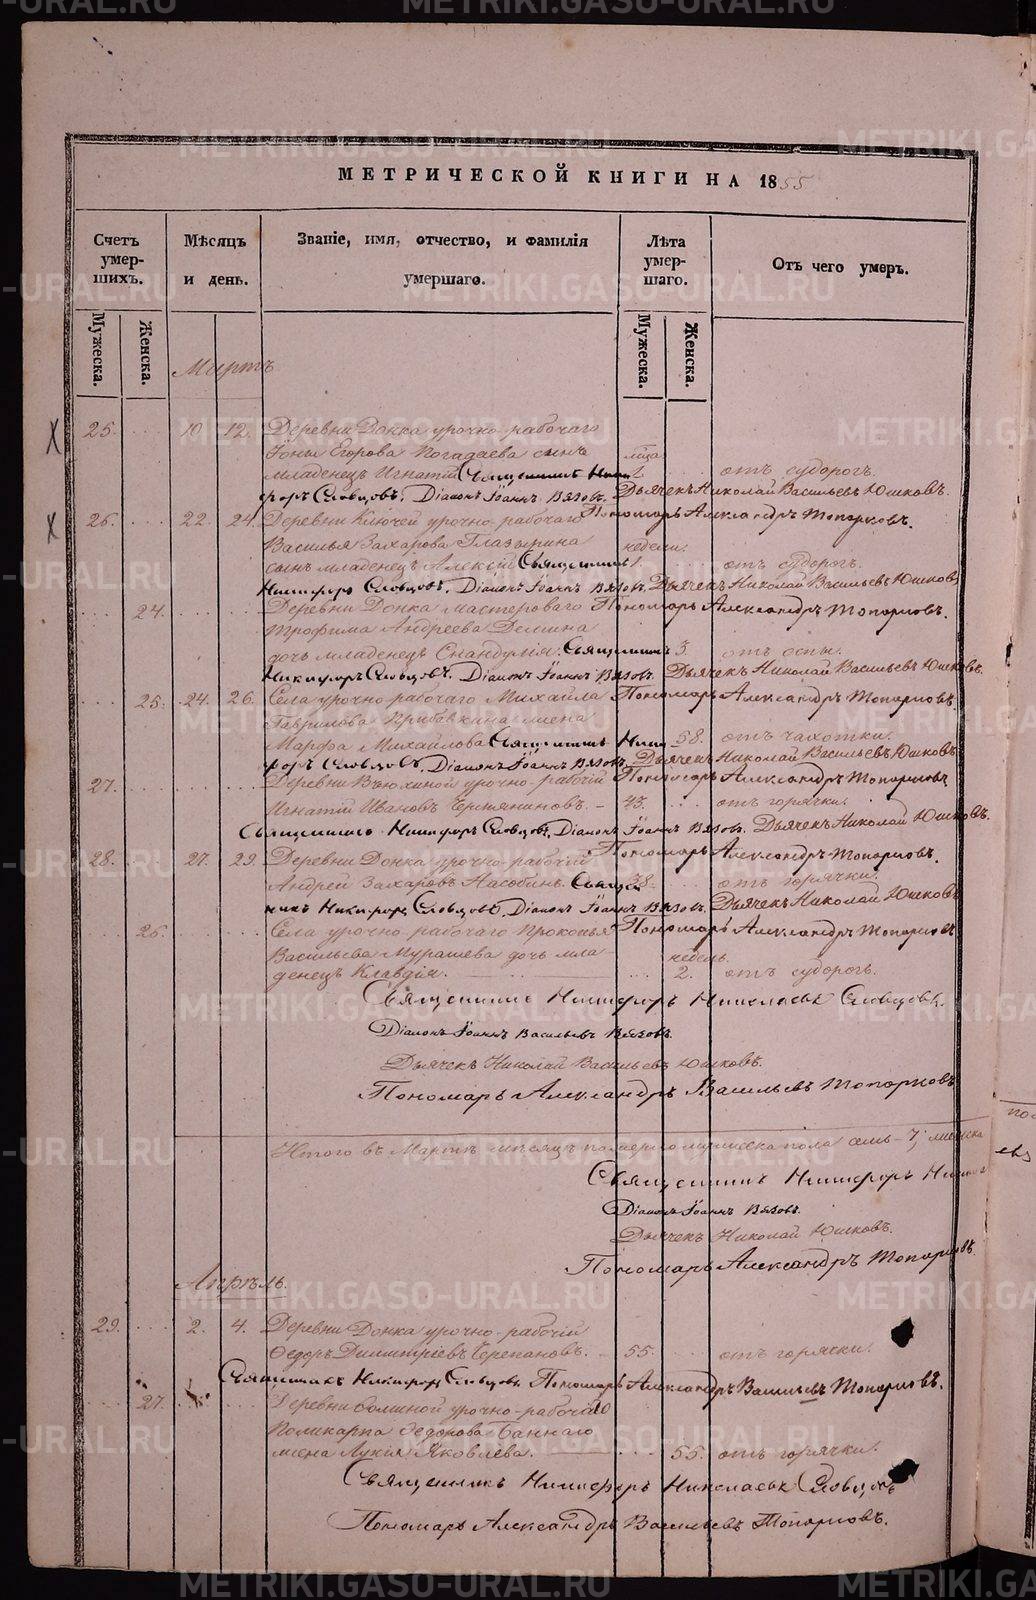 МЕТРИЧЕСКОЙ КНИГИ НА 1855
Счетъ умер-шихъ.
Мѣсяцъ и день.
Званіе, имя, отчество, и фамилія умершаго.
Лѣта умер-шаго.
Отъ чего умеръ.
Мужеска.
Женска.
Мужеска.
Женска.
Мартъ
25. 10 12. Деревни Донка урочно-рабочаго
Іоны Егорова Погадаева сынъ
младенецъ Игнатій Священникъ Ники 1. отъ судорогъ.
форъ Словцовъ. Діаконъ Іоаннъ Вязовъ. Дьячекъ Николай Васильевъ Юшковъ.
26. 22. 24. Деревни Ключей урочно-рабочаго Пономарь Александръ Топорковъ.
Василья Захарова Глазырина недели.
сынъ младенецъ Алексій Священникъ 1. отъ судорогъ.
Никифоръ Словцовъ. Діаконъ Іоаннъ Вязовъ. Дьячекъ Николай Васильевъ Юшковъ
24. Деревни Донка мастероваго Пономарь Александръ Топорковъ.
Трофима Андреева Демина
дочь младенецъ Священникъ 3 отъ оспы.
Никифоръ Словцовъ. Діаконъ Іоаннъ Вязовъ. Дьячекъ Николай Васильевъ Юшковъ.
25. 24. 26. Села урочно-рабочаго Михайла Пономарь Александръ Топорковъ.
Гаврилова Прибавкина жена
Марфа Михайлова Священникъ Ники 58. отъ чахотки.
форъ Словцовъ. Діаконъ Іоаннъ Вязовъ. Дьячекъ Николай Васильевъ Юшковъ
27. Деревни урочно-рабочій Пономарь Александръ Топорковъ
Игнатій Ивановъ 43. отъ горячки.
Священникъ Никифоръ Словцовъ, Діаконъ Іоаннъ Вязовъ. Дьячекъ Николай Юшковъ.
28. 27. 29. Деревни Донка урочно-рабочій Пономарь Александръ Топорковъ.
Андрей Захаровъ Священ 38. отъ горячки.
никъ Никифоръ Словцовъ, Діаконъ Іоаннъ Вязовъ. Дьячекъ Николай Юшковъ
26. Села урочно-рабочаго Прокопья Пономарь Александръ Топорковъ
Васильева Мурашева дочь мла- недель.
денецъ Клавдія. 2. отъ судорогъ.
Священникъ Никифоръ Николаевъ Словцовъ.
Діаконъ Іоаннъ Васильевъ Вязовъ.
Дьячекъ Николай Васильевъ Юшковъ.
Пономарь Александръ Васильевъ Топорковъ
Итого въ Мартѣ мѣсяцѣ померло мужеска пола семь-7, женска
Священникъ Никифоръ
Діаконъ Іоаннъ Вязовъ.
Дьячекъ Николай Юшковъ.
Пономарь Александръ Топорковъ.
Апрѣль.
29. 2. 4. Деревни Донка урочно-рабочій
Федоръ Димитріевъ Черепановъ. 55. отъ горячки.
Священникъ Никифоръ Словцовъ. Пономарь Александръ Васильевъ Топорковъ.
27. Деревни урочно-рабочаго
Поликарпа Федорова Баннаго
жена Лукія Яковлева. 55. отъ горячки.
Священникъ Никифоръ Николаевъ Словцовъ
Пономарь Александръ Васильевъ Топорковъ.
METRIKI.GASO-URAL.RU